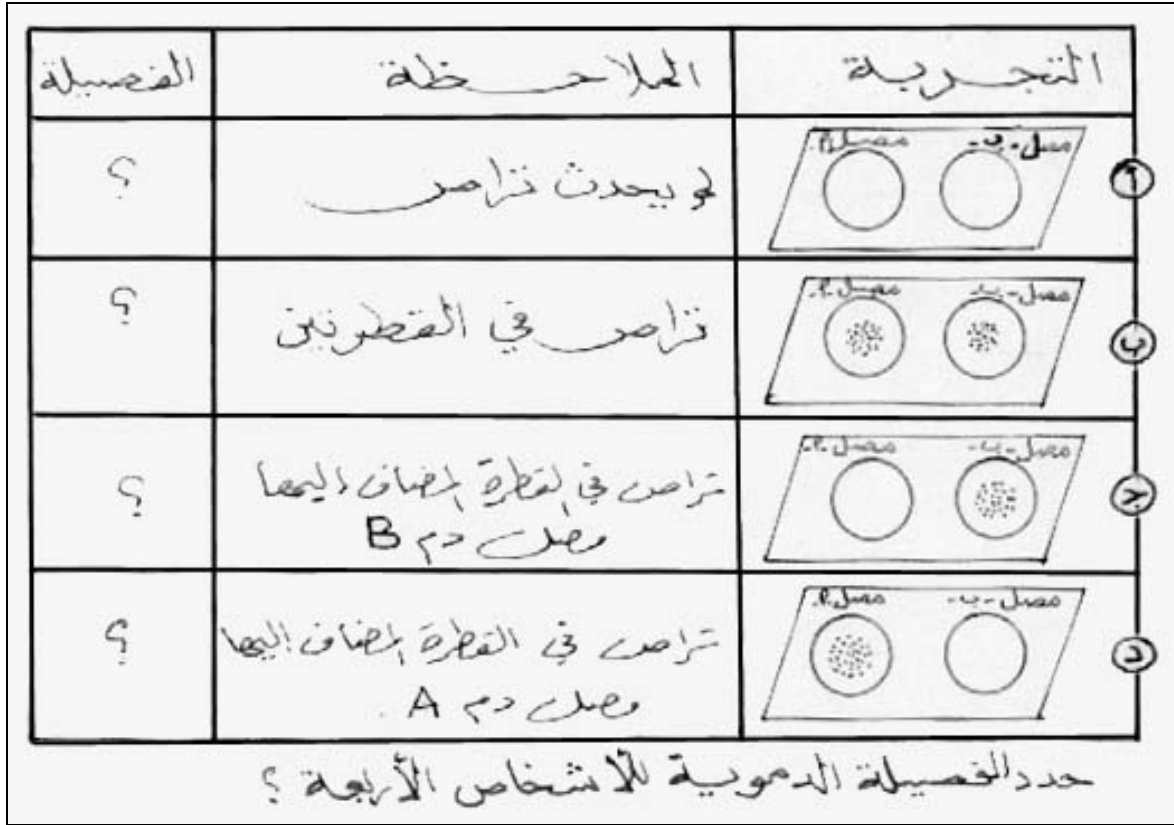 التجربة الملاحظة الفصيلة
أ مصل -ب- مصل أ- لم يحدث تراص ؟
ب مصل -ب- مصل -أ- تراص في القطرتين ؟
ج مصل -ب- مصل -أ- تراص في القطرة المضاف إليها ؟
مصل دم B
د مصل -ب- مصل أ- تراص في القطرة المضاف إليها ؟
مصل دم A .
حدد الفصيلة الدموية للأشخاص الأربعة ؟